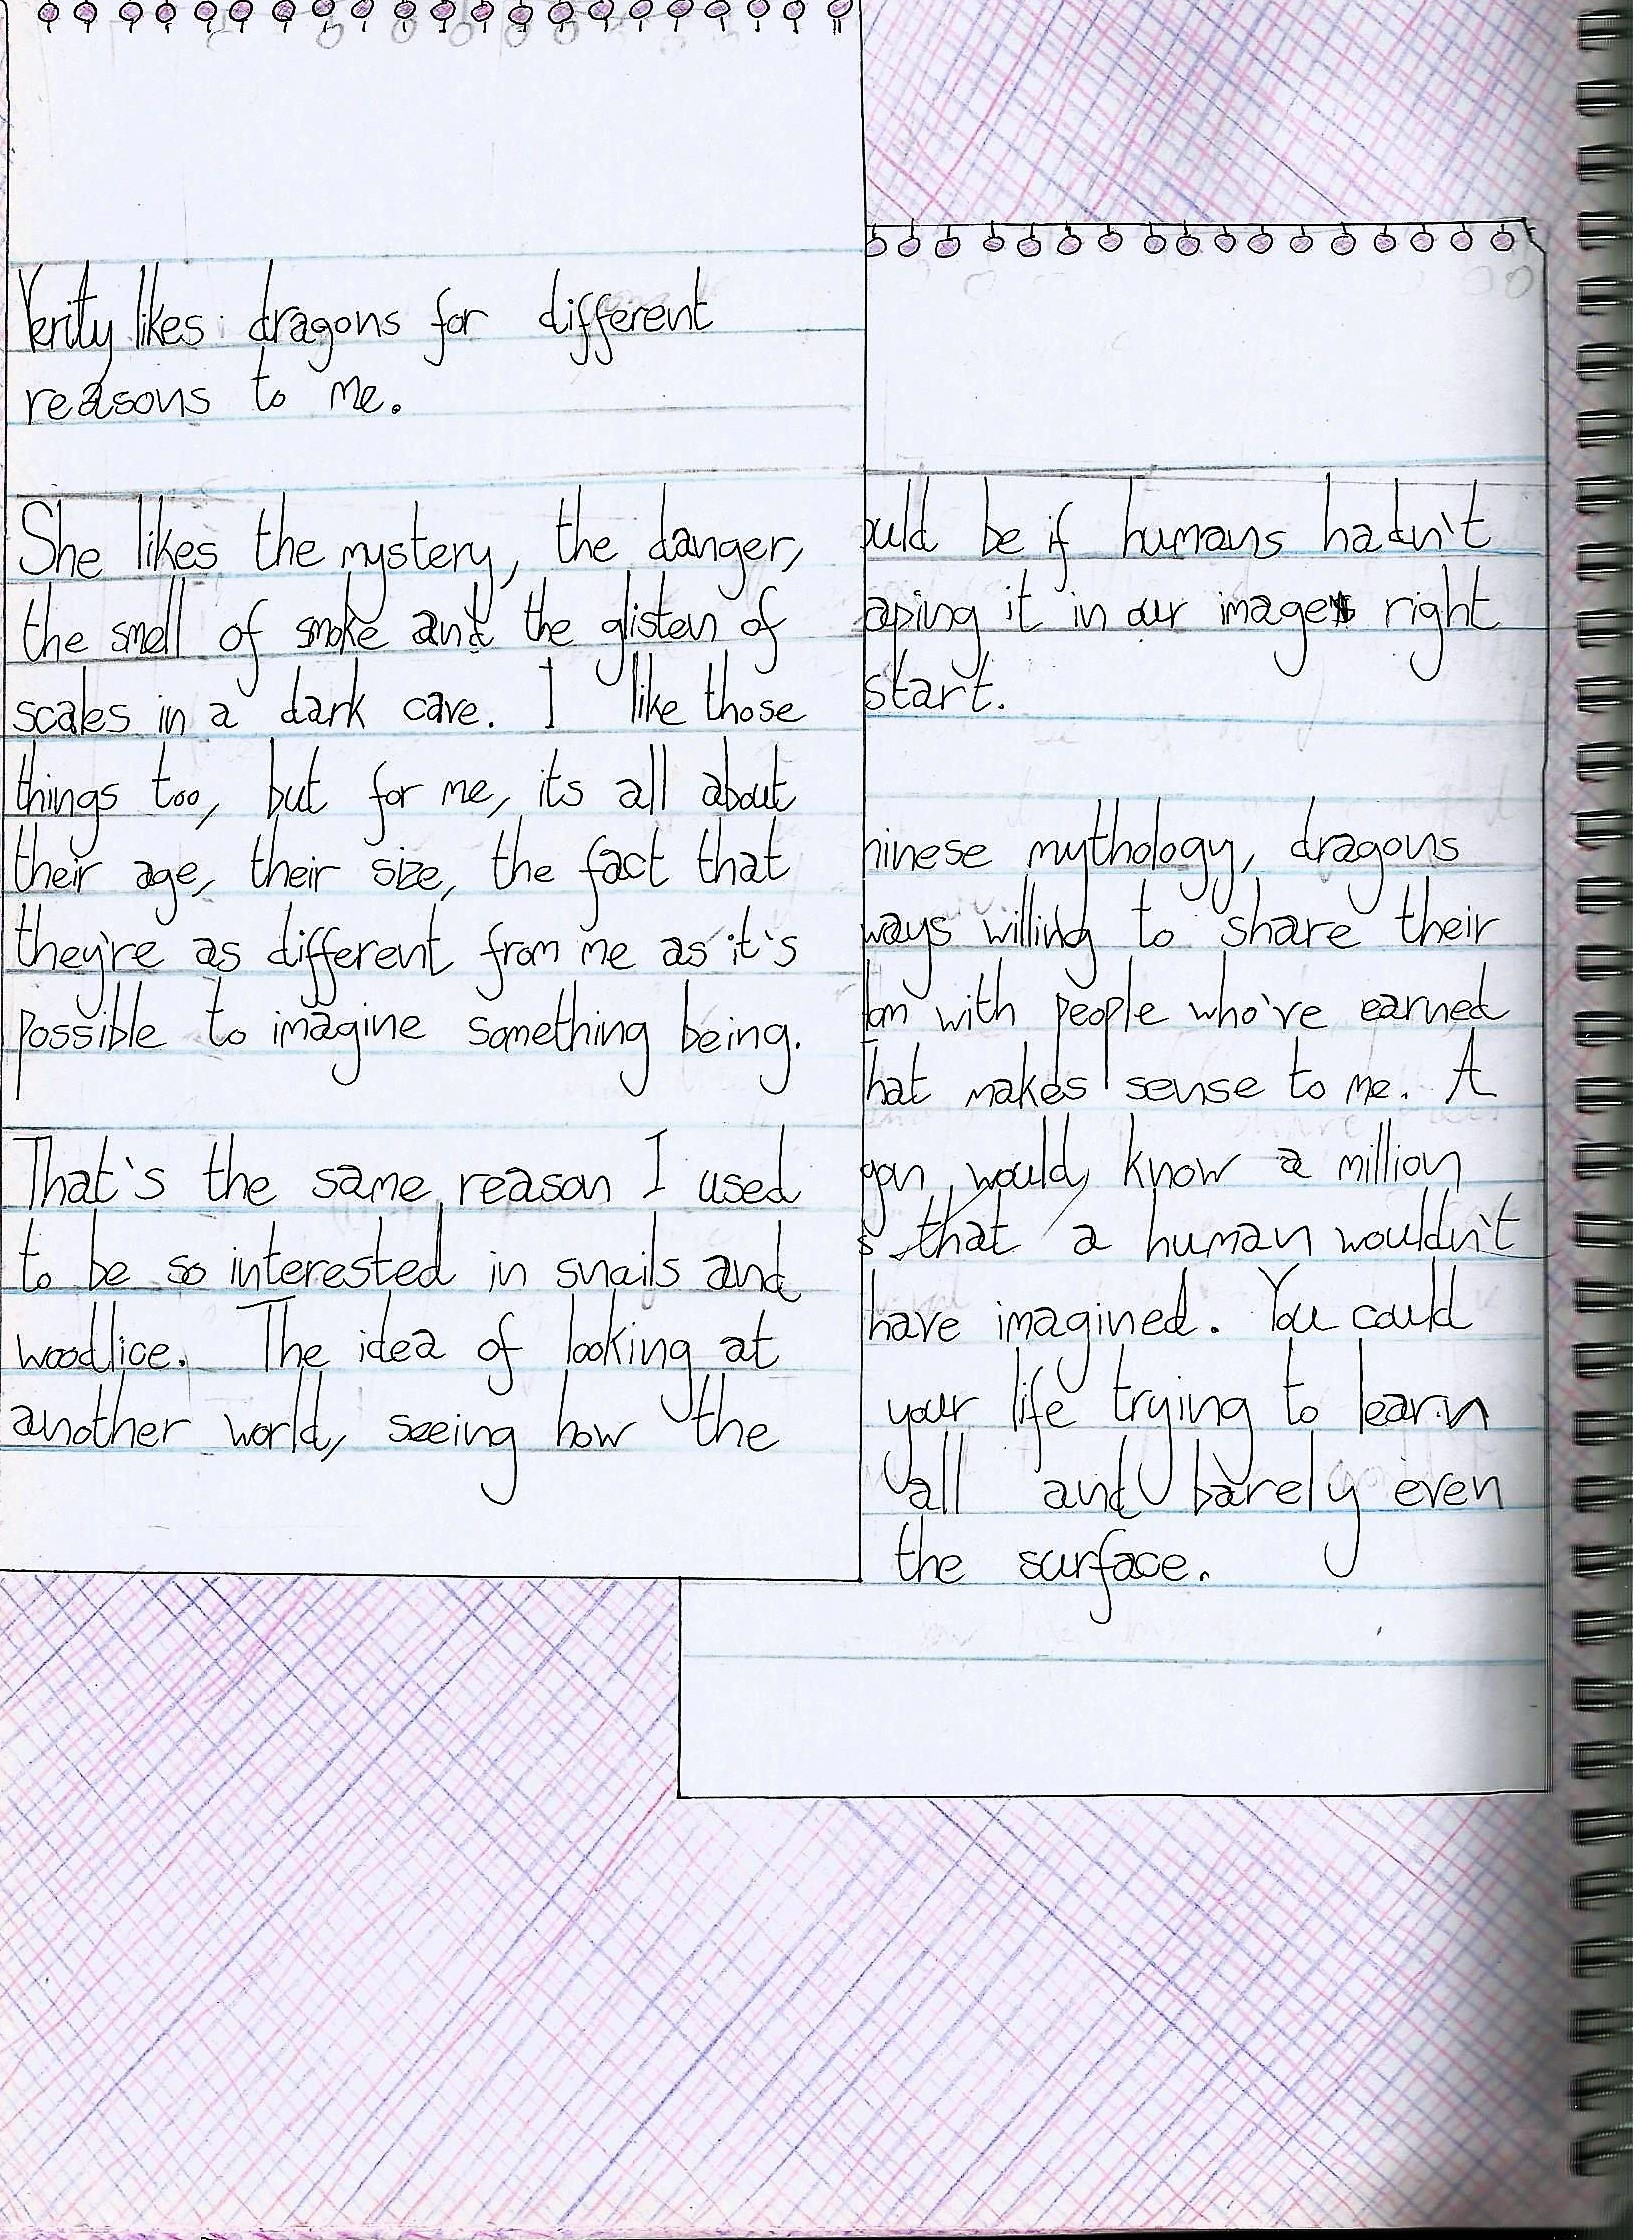 Verity likes dragons for different
reasons to me.
She likes the mystery, the danger,
the smell of smoke and the glisten of
scales in a dark cave. I like those
things too, but for me, its all about
their age, their size, the fact that
they're as different from me as it's
possible to imagine something being.
That's the same reason I used
to be so interested in snails and
woodlice. The idea of looking at
another world, seeing how the
ould be if humans hadn't
aping it in our image right
start.
hinese mythology, dragons
ways willing to share their
om with people who've earned
hat makes sense to me. A
gon would know a million
s that a human wouldn't
have imagined. You could
your life trying to learn
all and barely even
the surface.